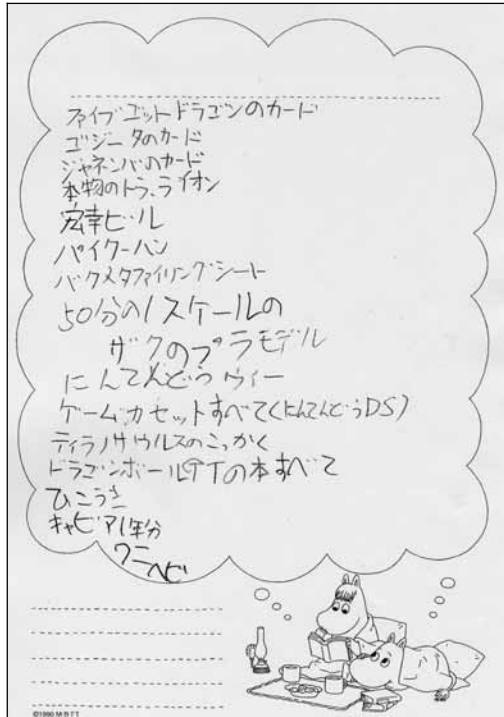 ファイブゴットドラゴンのカード
ゴジータのカード
ジャネンバのカード
本物のトラ、ライオン
宏幸ビル
パイクーハン
バクメタファイリングシート
50分の1スケールの
ザクのプラモデル
にんてんどうウィー
ゲームカセットすべて(にんてんどうDS)
ティラノサウルスのこっかく
ドラゴンボールGTの本すべて
ひこうき
キャビア1年分
ワニ
ヘビ
©1990 M B T T